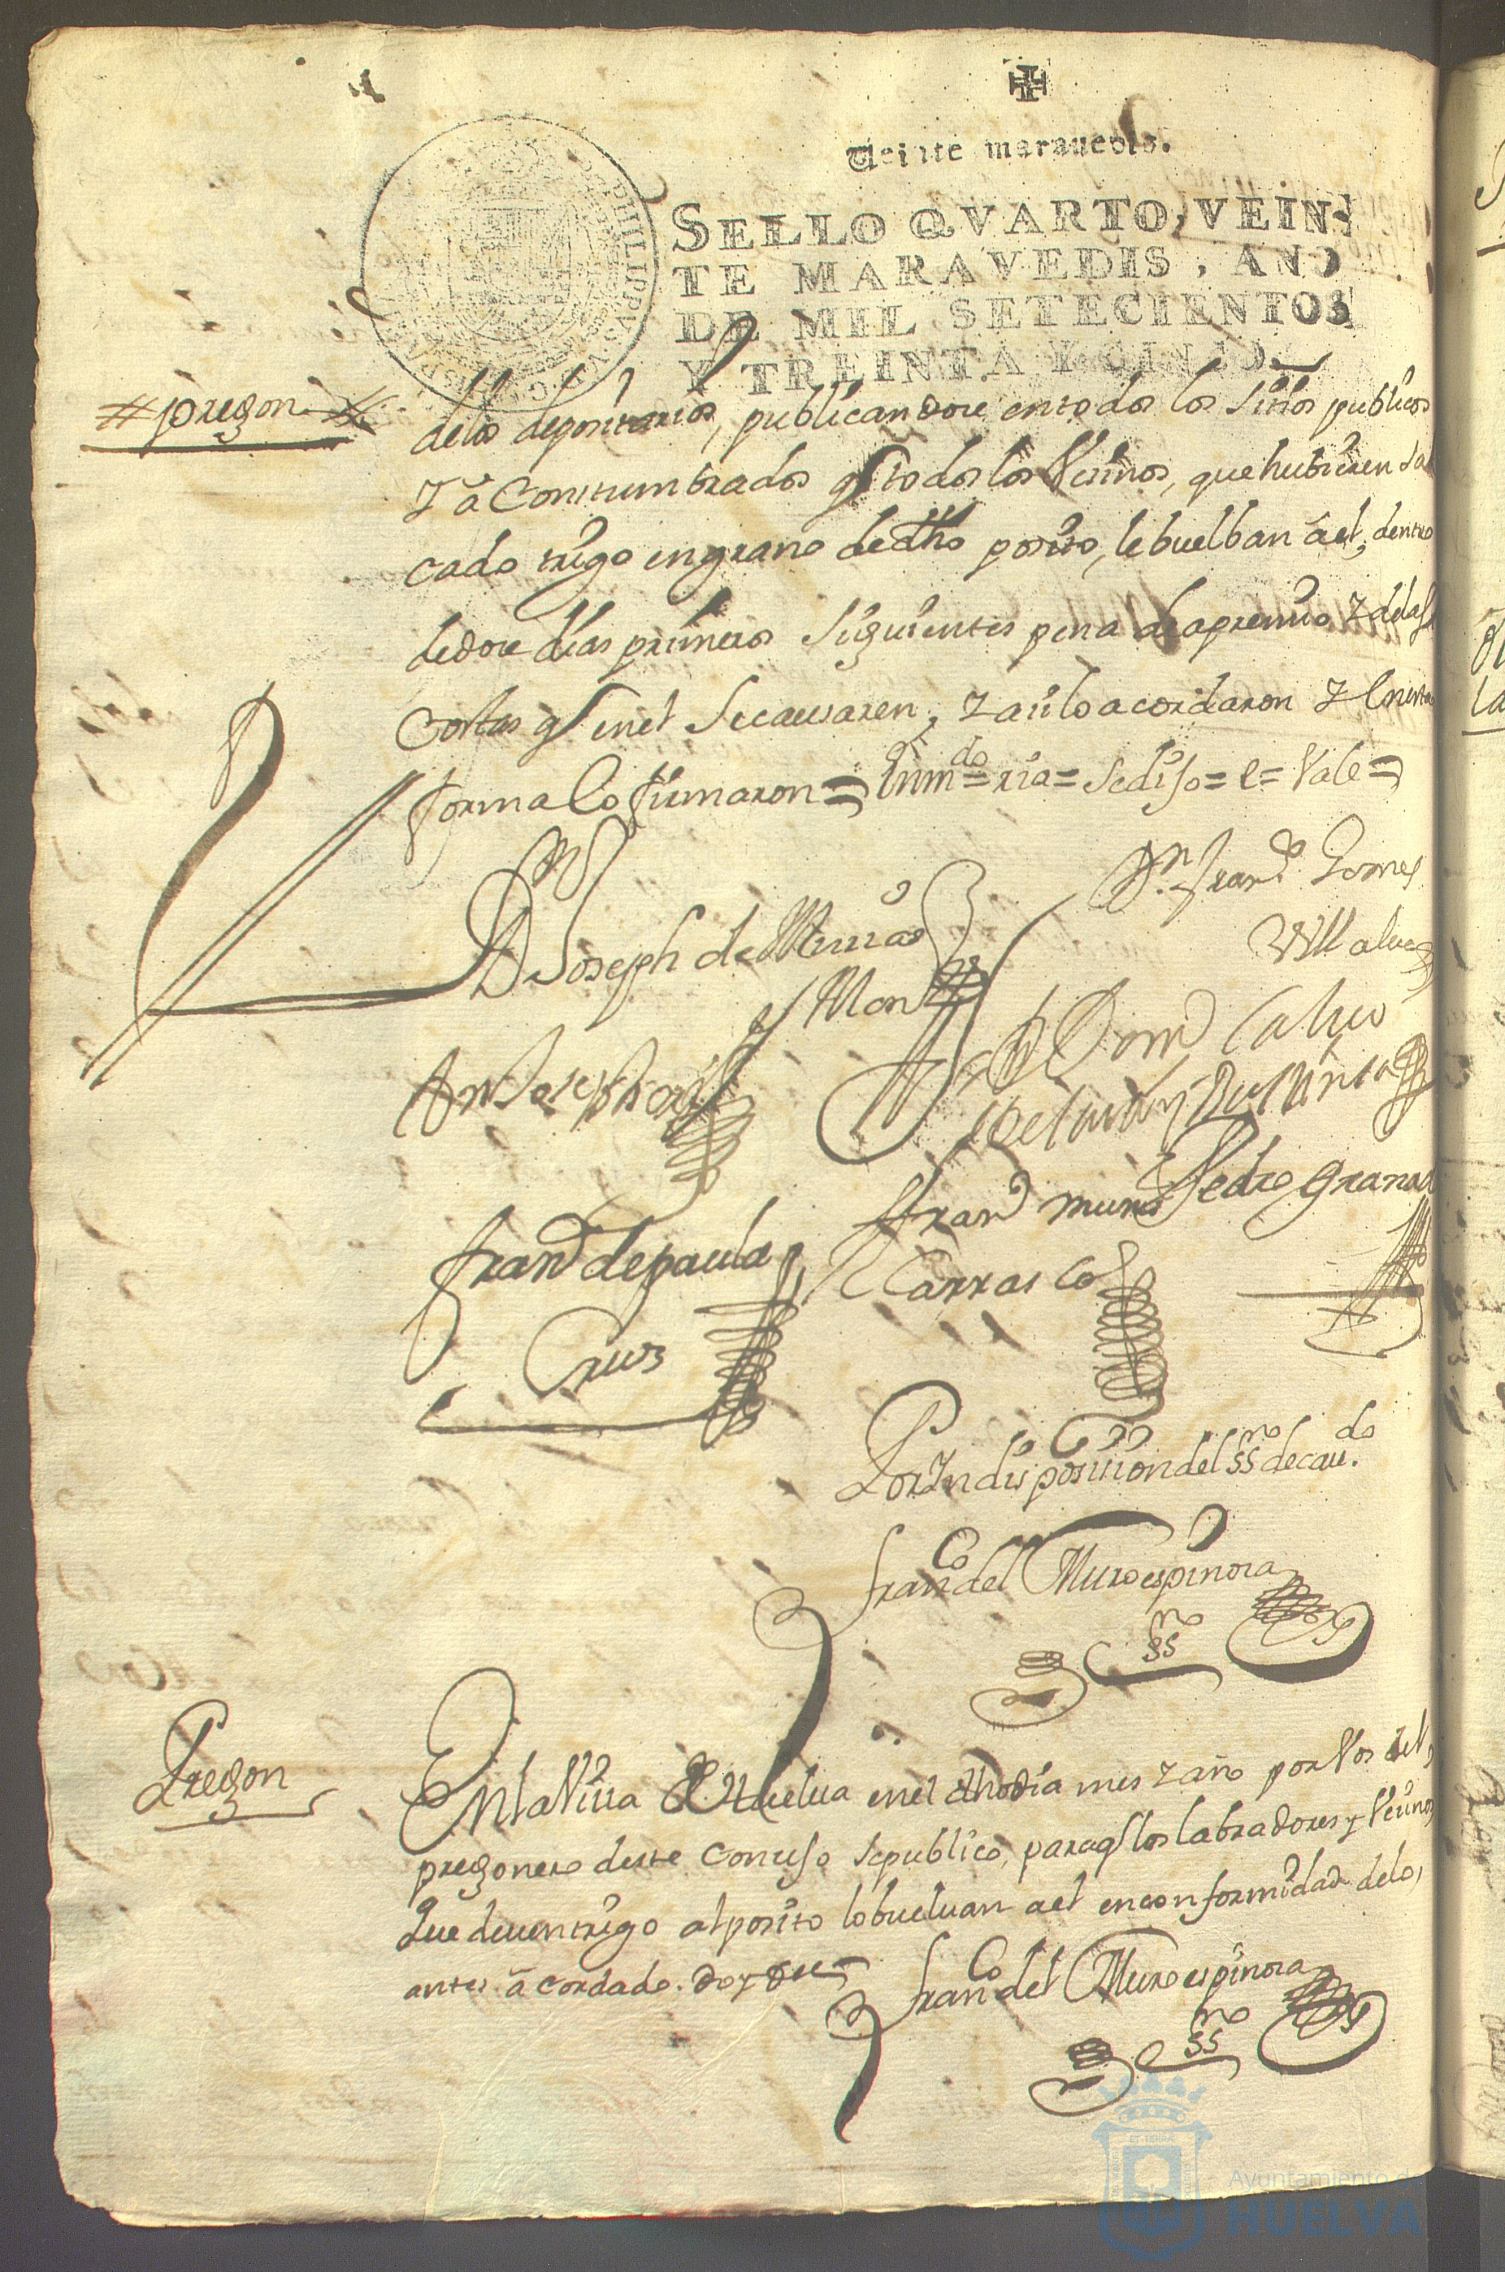 Veinte marauedis.
SELLO QVARTO, VEIN-
TE MARAVEDIS, AÑO
DE MIL SETECIENTOS
Y TREINTA Y CINCO.
PHILIPPVS
pregon
delos depositarios, publicandose entodos los sitios publicos
y a Constumbrados q̃ todos los Vesinos, que hubiesen sa
cado trigo engrano de dho posito, lebuelban ael, dentro
dedose dias primeros siguientes pena de apremio y delas
Costas q̃ enel Secausaren, y asilo acordaron y
forma lo firmaron = Enmdo = ria = sediso = e = Vale =
Dn Franco Gomes
Villalua
D Joseph de
Mon
Dn Domo Caluo
Franco Muños Pedro Grana
Carrasco
Franco depaula
Crus
Por Yndisposision del ssno de caudo
Franco del Muro espinosa
ssno
Pregon
En la Villa de Huelua enel dho dia mes y año por Vos del
pregonero deste Consejo sepublico, paraq̃ los labradores y Vesinos
que deuentrigo alposito lobueluan ael enconformidad delo
antes acordado. doy fee =
Franco del Muro espinosa
ssno
Ayuntamiento de
HUELVA